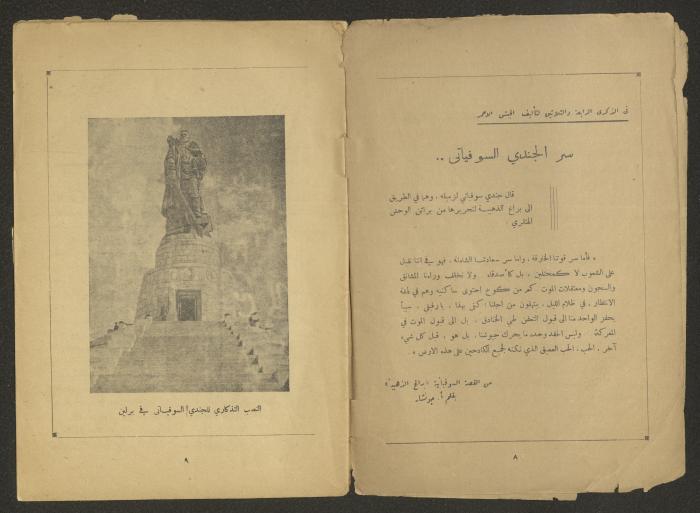 في الذكرى الرابعة والثلاثين لتأليف الجيش الاحمر
سر الجندي السوفياتي ..
قال جندي سوفياتي لزميله ، وهما في الطريق
الى براغ الذهبية لتحريرها من براثن الوحش
الهتلري :
« فأما سر قوتنا الخارقة ، واما سر سعادتنا الشاملة ، فهو في اننا نقبل
على الشعوب لا كمحتلين ، بل كأصدقاء . ولا نخلف وراءنا المشانق
والسجون ومعتقلات الموت . كم من كوخ احتوى ساكنيه وهم في لهفة
الانتظار ، في ظلام الليل ، ينتهون من اجلنا ! كفى بهذا ، يا رفيقي ، سبباً
يحفز الواحد منا الى قبول في الخنادق ، بل الى قبول الموت في
المعركة . وليس الحقد وحده ما يحرك جيوشنا ، بل هو ، قبل كل شيء
آخر ، الحب ، الحب العميق الذي نكنه لجميع الكادحين على هذه الارض » .
من القصة السوفياتية «براغ الذهبية»
بقلم أ. هونشار
٨
النصب التذكاري للجندي السوفياتي في برلين
٩